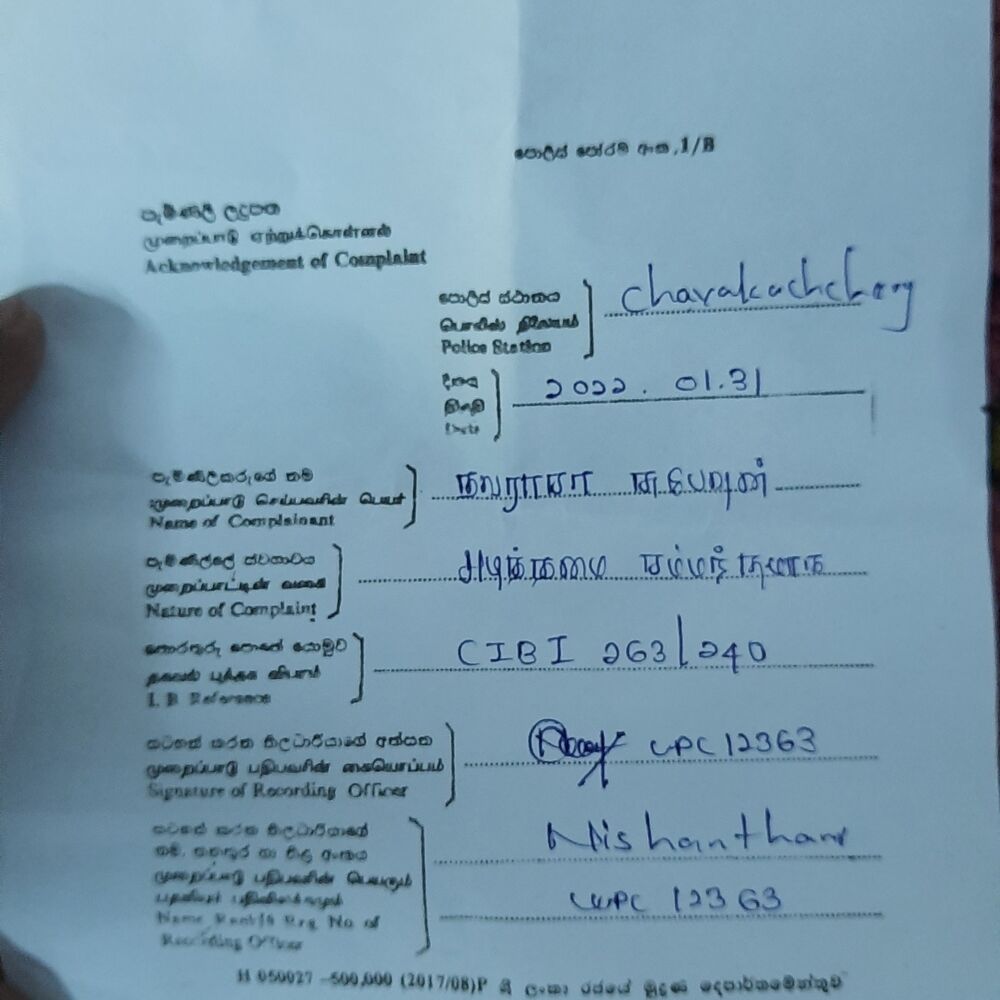 පොලිස් පෝරම අංක,1/B
පැමිණිලි ලදුපත
முறைப்பாடு ஏற்றுக்கொள்ளல்
Acknowledgement of Complaint
පොලිස් ස්ථානය
பொலிஸ் நிலையம்
Police Station
Chavakachchery
දිනය
திகதி
Date
2022.01.31
පැමිණිලිකරුගේ නම
முறைப்பாடு செய்பவரின் பெயர்
Name of Complainant
தவராசா
පැමිණිල්ලේ ස්වභාවය
முறைப்பாட்டின் வகை
Nature of Complaint
அடித்தமை சம்மந்தமாக
තොරතුරු පොතේ යොමුව
தகவல் புத்தக விபரம்
I. B Reference
CIBI 263/240
සටහන් කරන නිලධාරියාගේ අත්සන
முறைப்பாடு பதிபவரின் கையொப்பம்
Signature of Recording Officer
WPC 12363
සටහන් කරන නිලධාරියාගේ
නම, තනතුර හා නිල අංකය
முறைப்பாடு பதிபவரின் பெயரும்
பதவியும் பதிவிலக்கமும்
Name Rank & Reg. No of
Recording Officer
Nishanthani
WPC 12363
H 050027 –500,000 (2017/08)P ශ්‍රී ලංකා රජයේ මුද්‍රණ දෙපාර්තමේන්තුව